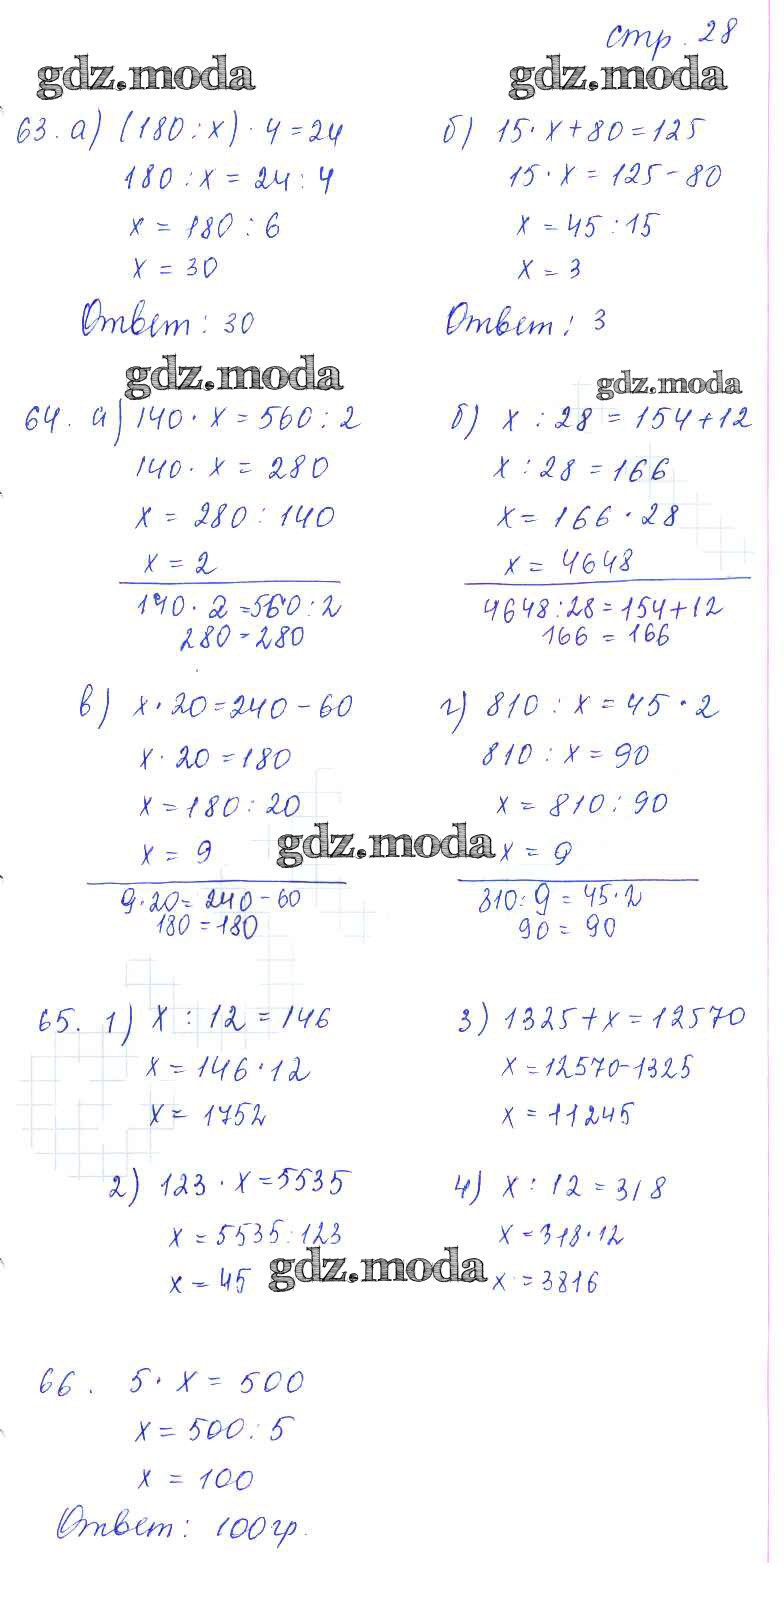 стр. 28
gdz.moda gdz.moda
63. а) (180 : x) · 4 = 24
180 : x = 24 : 4
x = 180 : 6
x = 30
Ответ: 30
б) 15 · x + 80 = 125
15 · x = 125 - 80
x = 45 : 15
x = 3
Ответ: 3
gdz.moda gdz.moda
64. а) 140 · x = 560 : 2
140 · x = 280
x = 280 : 140
x = 2
140 · 2 = 560 : 2
280 = 280
б) x : 28 = 154 + 12
x : 28 = 166
x = 166 · 28
x = 4648
4648 : 28 = 154 + 12
166 = 166
в) x · 20 = 240 - 60
x · 20 = 180
x = 180 : 20
x = 9
9 · 20 = 240 - 60
180 = 180
г) 810 : x = 45 · 2
810 : x = 90
x = 810 : 90
gdz.moda
x = 9
810 : 9 = 45 · 2
90 = 90
65. 1) x : 12 = 146
x = 146 · 12
x = 1752
3) 1325 + x = 12570
x = 12570 - 1325
x = 11245
2) 123 · x = 5535
x = 5535 : 123
x = 45
4) x : 12 = 318
x = 318 · 12
gdz.moda
x = 3816
66. 5 · x = 500
x = 500 : 5
x = 100
Ответ: 100 гр.